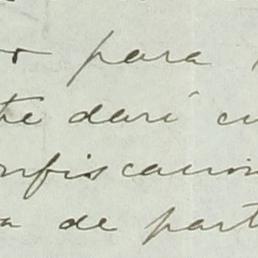 para
te daré cu
nfiscacion
a de part